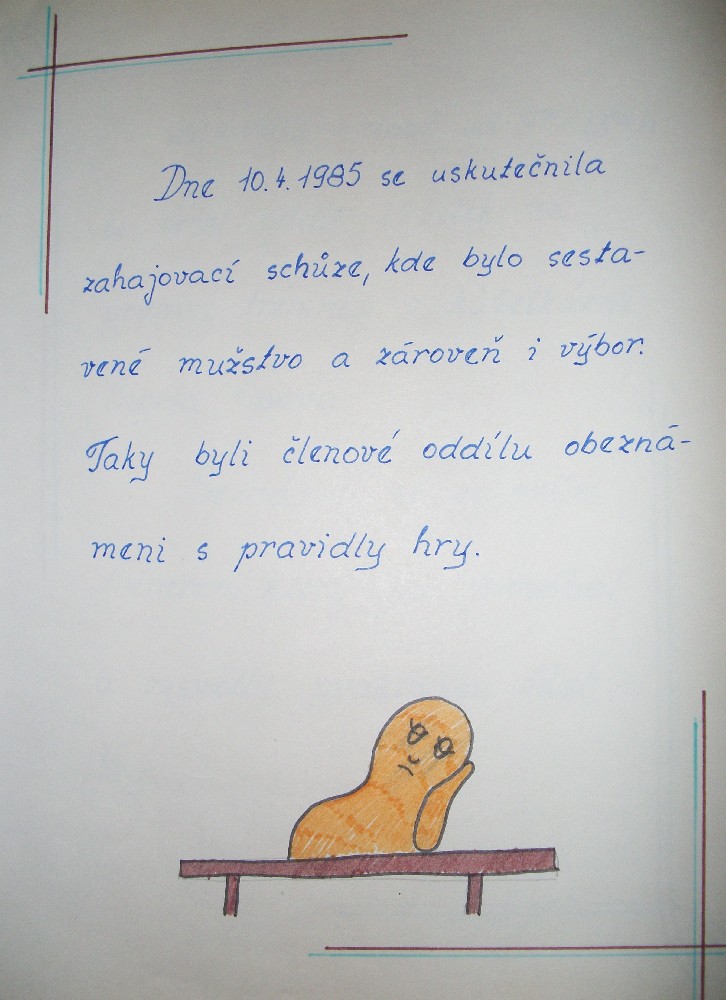 Dne 10.4.1985 se uskutečnila
zahajovací schůze, kde bylo sesta-
vené mužstvo a zároveň i výbor.
Taky byli členové oddílu obezná-
meni s pravidly hry.